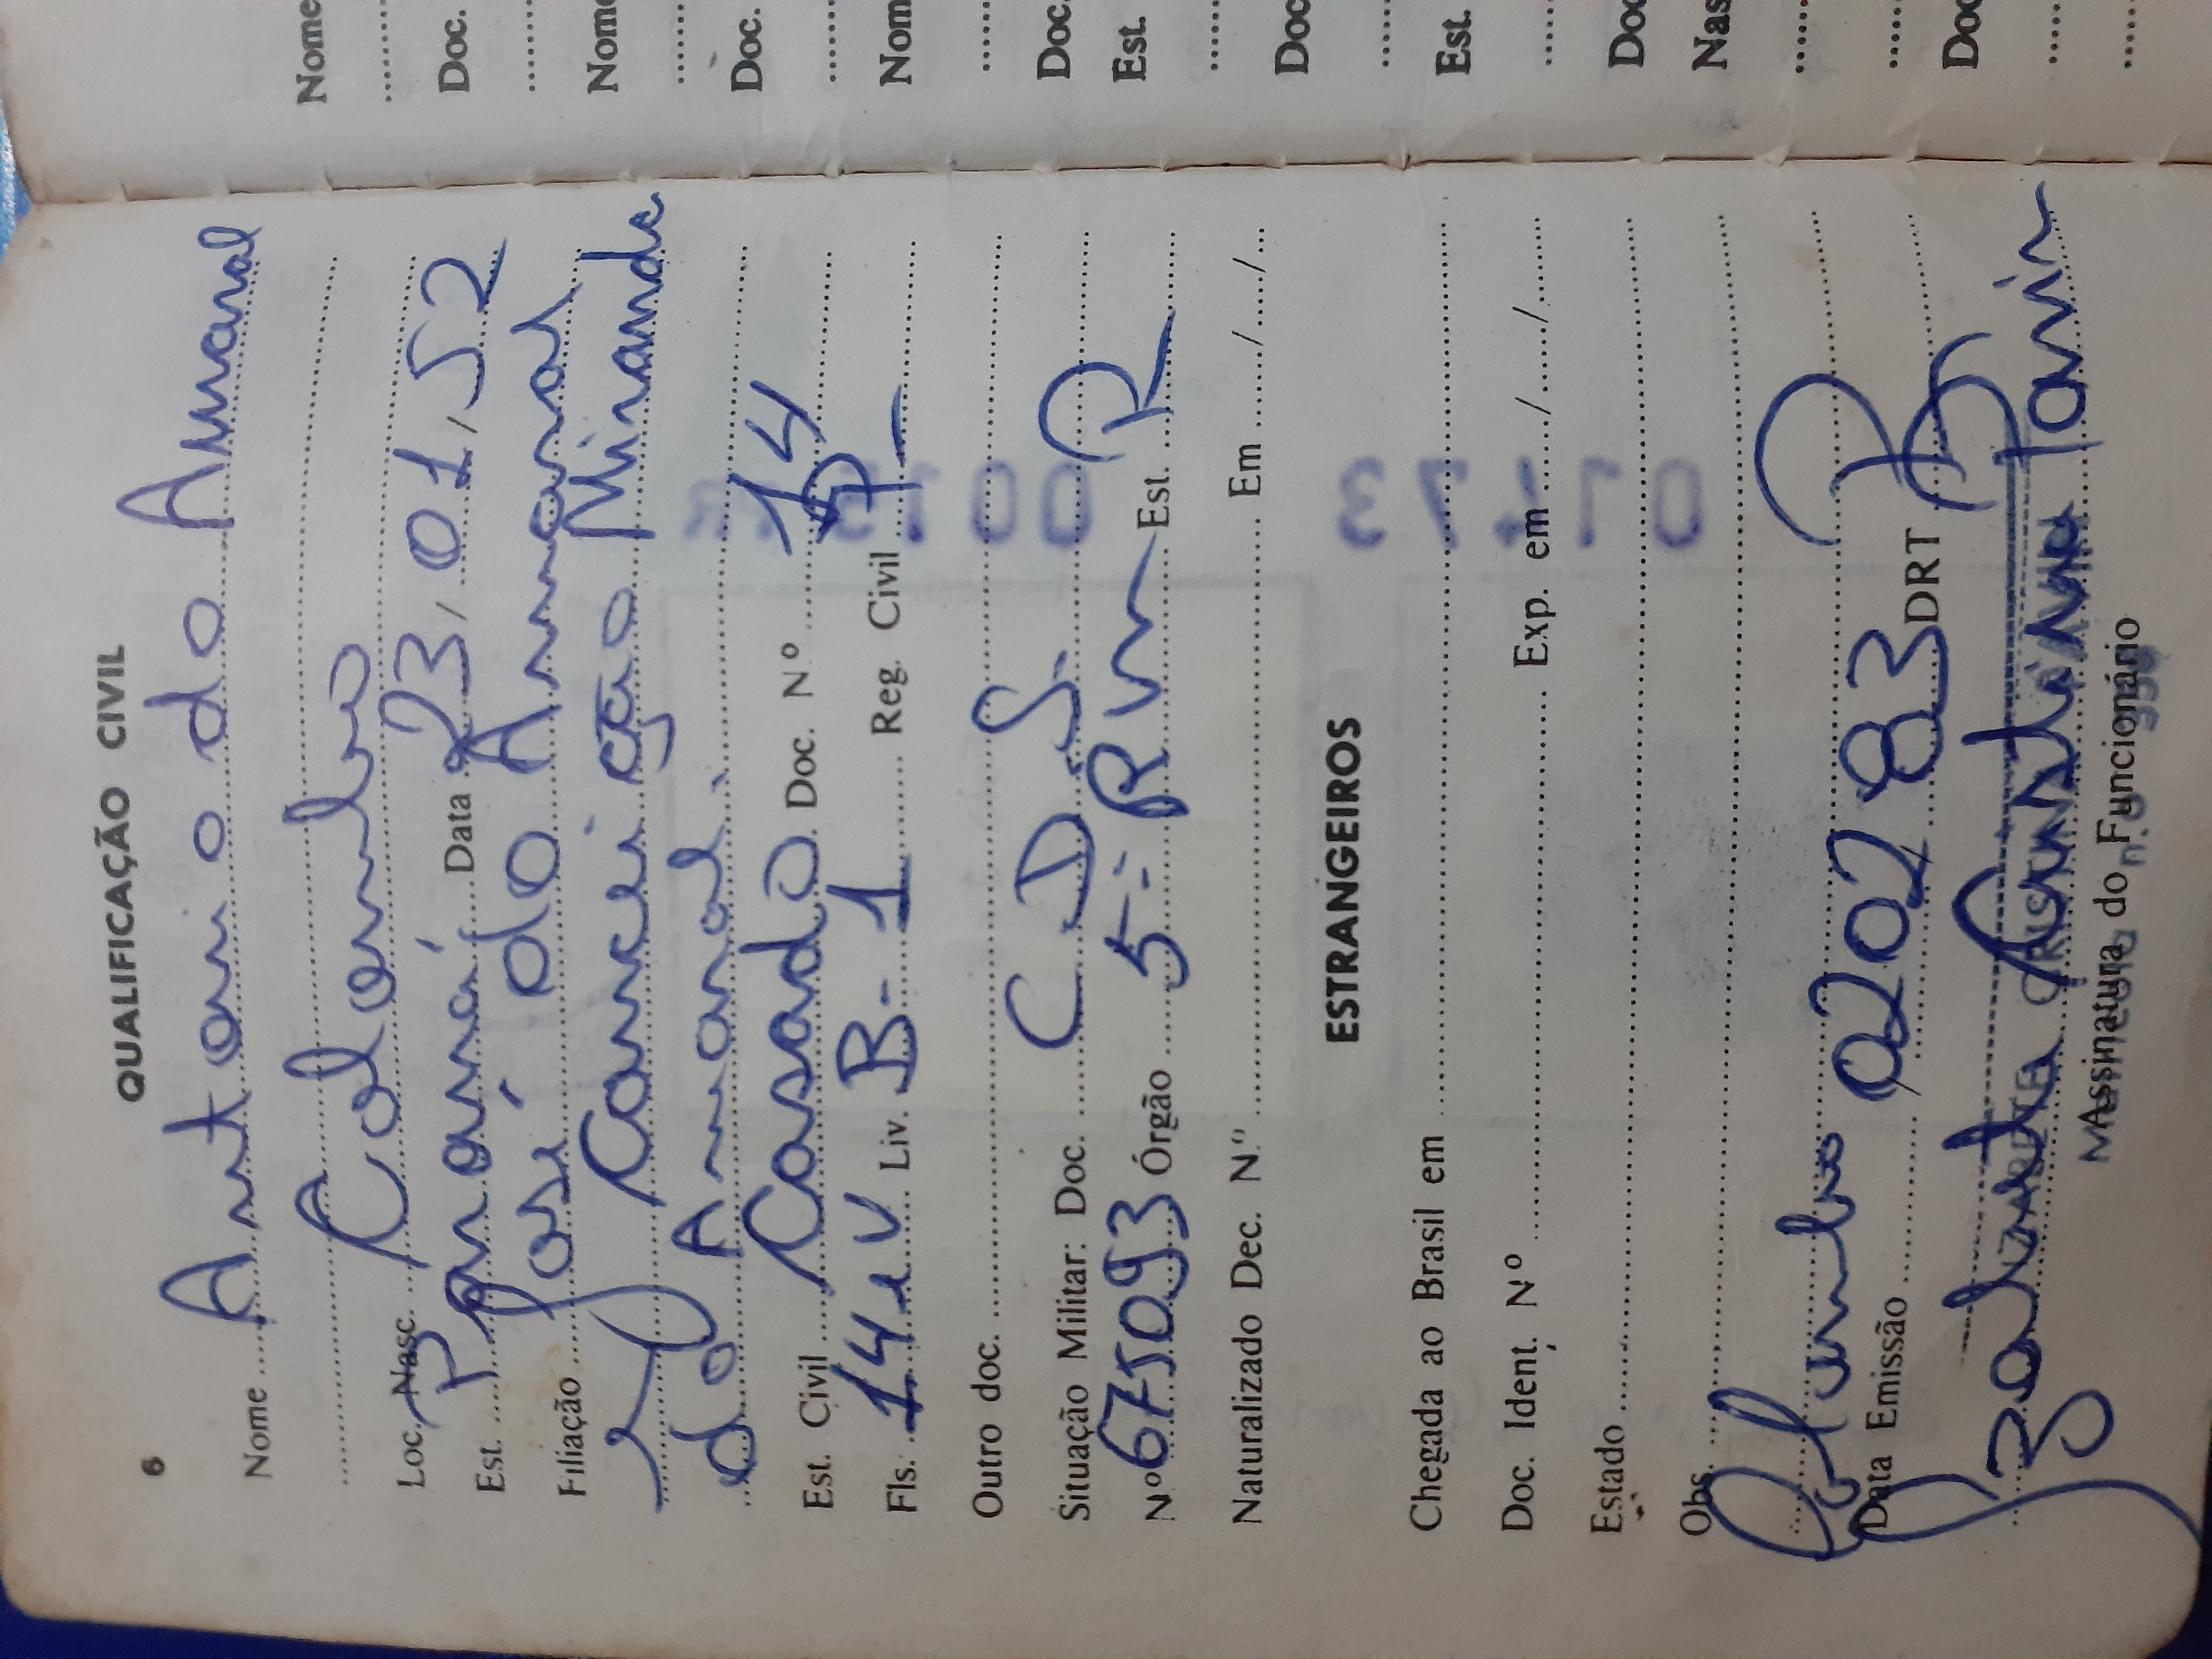 6
QUALIFICAÇÃO CIVIL
Nome Antonio do Amaral
Loc. Nasc. Colombo
Est. Paraná Data 23/01/52
Filiação José do Amaral
Conceição Miranda
do Amaral.
Est. Civil Casado Doc. Nº 14
Fls. 14 e V Liv. B-1 Reg. Civil
Outro doc.
Situação Militar: Doc. C D S
Nº 675093 Órgão 5ª RM Est. PR
Naturalizado Dec. Nº Em / /
ESTRANGEIROS
Chegada ao Brasil em
Doc. Ident. Nº Exp. em / /
Estado
Obs.
Colombo PR
Data Emissão 02/02/83 DRT PR
Assinatura do Funcionário
Nome
Doc.
Nome
Doc.
Nom
Doc.
Est.
Doc
Est.
Doc
Nas
Doc